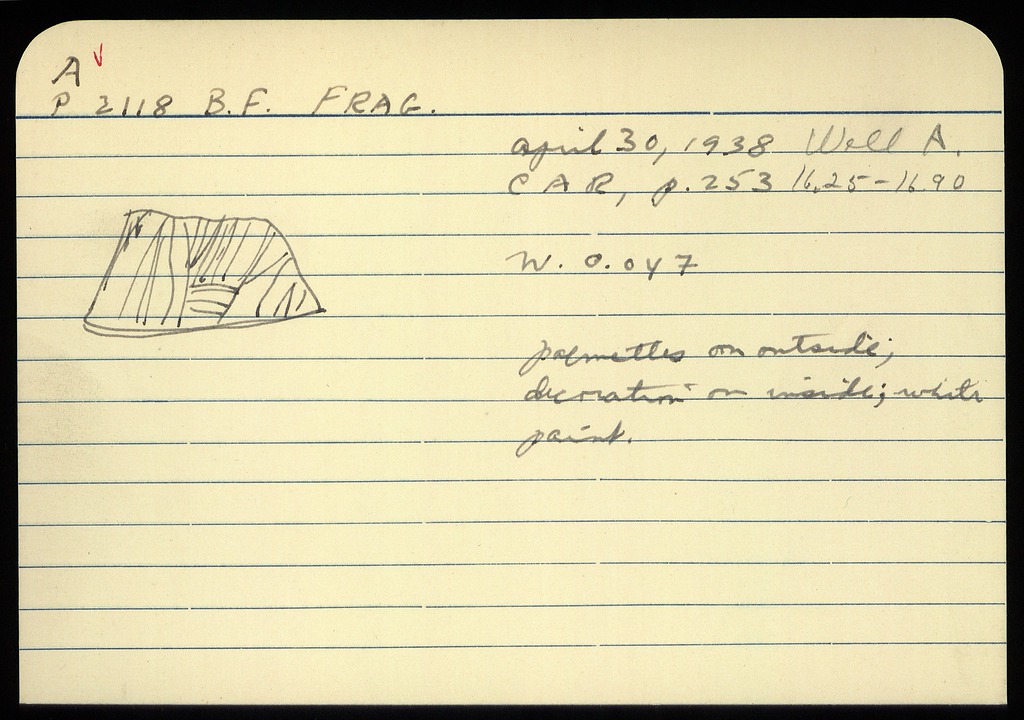 A
P 2118 B.F. FRAG.
april 30, 1938 Well A.
C A R, p. 253 16.25-16.90
W. 0.047
palmettes on outside;
decoration on inside; white
paint.